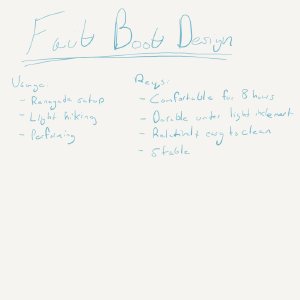 Faut Boot Design
Usage
- Renegade setup
- Light hiking
- Performing
Reqs:
- Comfortable for 8 hours
- Durable under light element
- Relatively easy to clean
- Stable